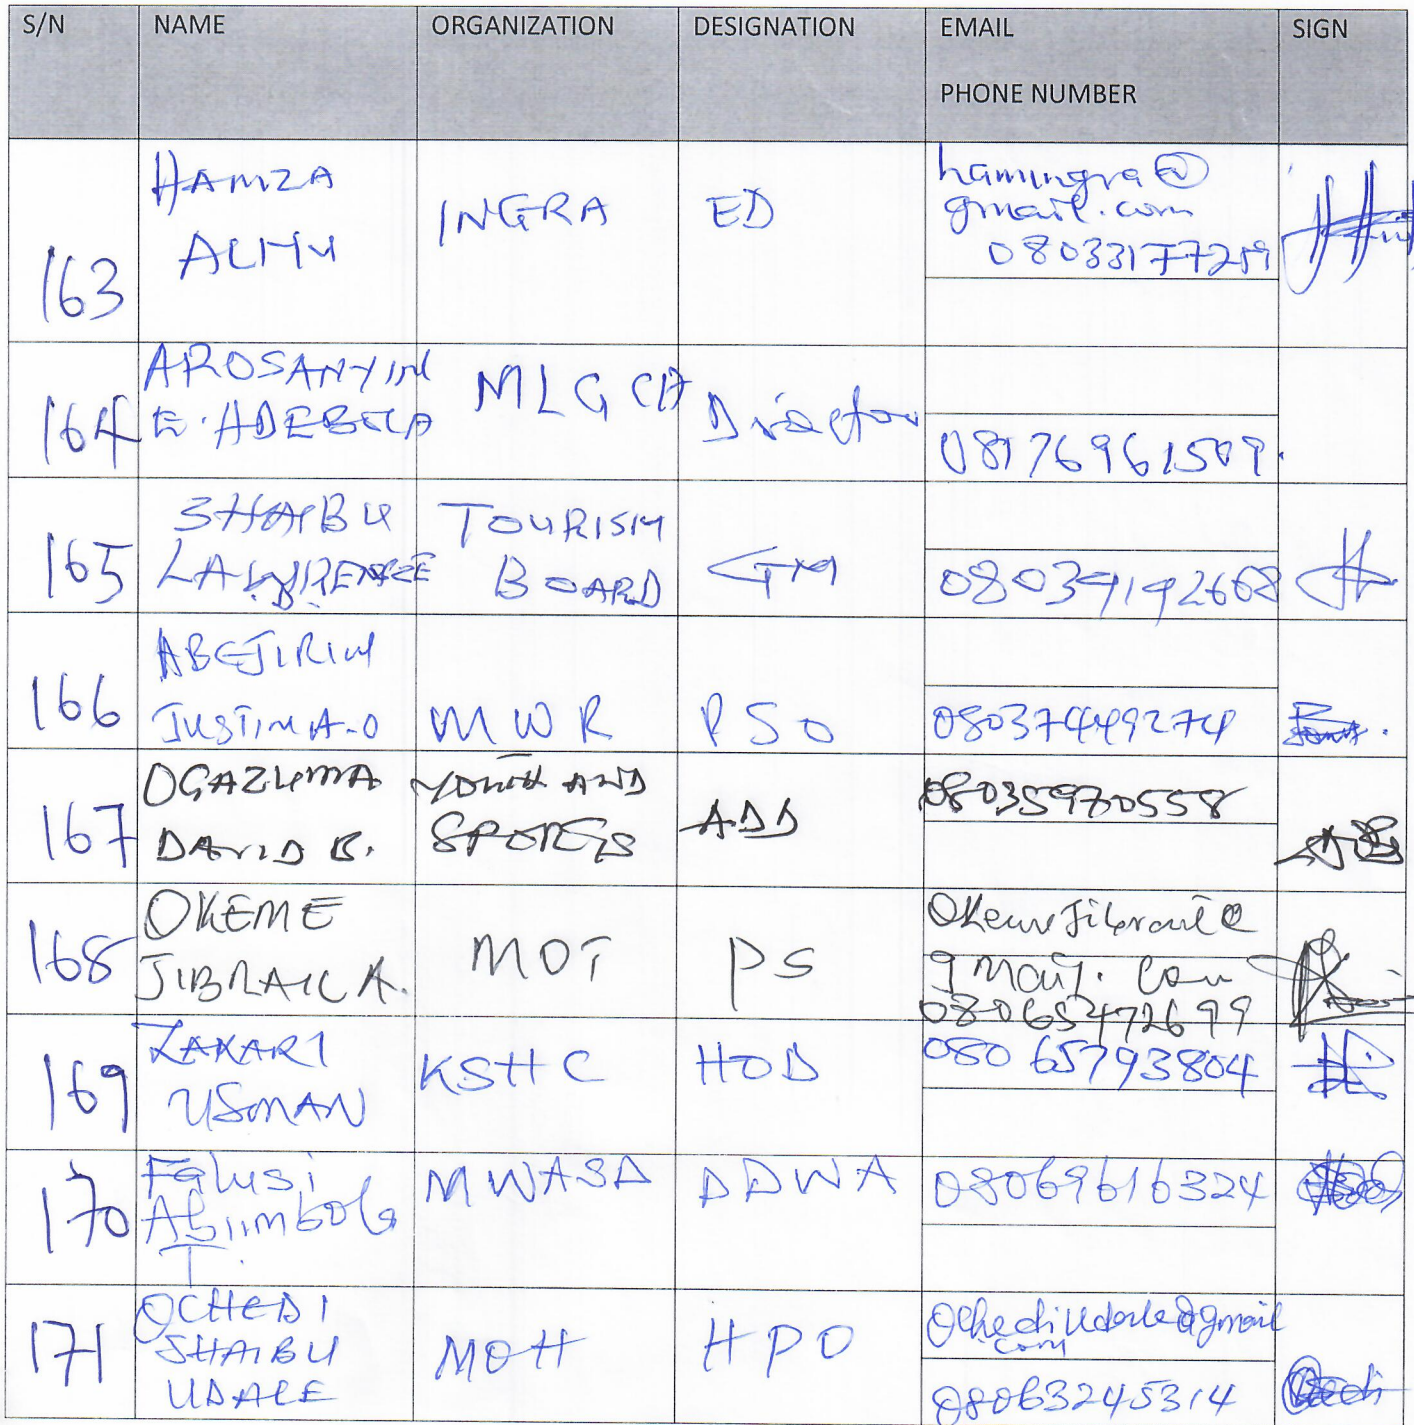 S/N NAME ORGANIZATION DESIGNATION EMAIL SIGN
PHONE NUMBER
163 HAMZA ALIYU INGRA ED hamingra@
gmail.com
08033177259
164 AROSANYIN
E. ADEBOLA MLGCA Director 08176961509.
165 SHAIBU
LAWRENCE TOURISM
BOARD GM 08039192668
166 ABEJIRIN
JUSTIN A.O MWR PSO 08037449274
167 OGAZUMA
DAVID B. YOUTH AND
SPORTS ADD 08035970558
168 OKEME
JIBRAIL A. MOT PS
gmail.com
08065472699
169 ZAKARI
USMAN KSHC HOD 08065793804
170 Falusi
Abimbola
T. MWASD DDWA 08069616324
171 OCHEDI
SHAIBU
UDALE MOH HPO Ochediudale@gmail
com
08063245314